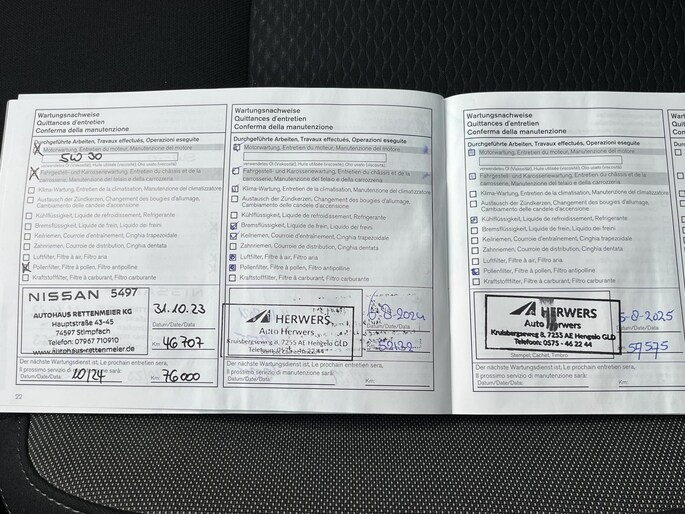 Wartungsnachweise
Quittances d'entretien
Conferma della manutenzione
Durchgeführte Arbeiten, Travaux effectués, Operazioni eseguite
Motorwartung, Entretien du moteur, Manutenzione del motore
5W30
verwendetes Öl (Viskosität), Huile utilisée (viscosité), Olio usato (viscosità)
Fahrgestell- und Karosseriewartung, Entretien du châssis et de la
carrosserie, Manutenzione del telaio e della carrozzeria
Klima-Wartung, Entretien de la climatisation, Manutenzione del climatizzatore
Austausch der Zündkerzen, Changement des bougies d'allumage,
Cambiamento delle candele d'accensione
Kühlflüssigkeit, Liquide de refroidissement, Refrigerante
Bremsflüssigkeit, Liquide de frein, Liquido dei freni
Keilriemen, Courroie d'entraînement, Cinghia trapezoidale
Zahnriemen, Courroie de distribution, Cinghia dentata
Luftfilter, Filtre à air, Filtro aria
Pollenfilter, Filtre à pollen, Filtro antipolline
Kraftstofffilter, Filtre à carburant, Filtro carburante
NISSAN 5497
AUTOHAUS RETTENMEIER KG
Hauptstraße 43-45
74597 Stimpfach
Telefon: 07967 710910
www.autohaus-rettenmeier.de
31.10.23
Datum/Date/Data:
Km: 46707
Der nächste Wartungsdienst ist, Le prochain entretien sera,
Il prossimo servizio di manutenzione sarà:
Datum/Date/Data: 10/24 Km: 76000
22
Wartungsnachweise
Quittances d'entretien
Conferma della manutenzione
Durchgeführte Arbeiten, Travaux effectués, Operazioni eseguite
Motorwartung, Entretien du moteur, Manutenzione del motore
verwendetes Öl (Viskosität), Huile utilisée (viscosité), Olio usato (viscosità)
Fahrgestell- und Karosseriewartung, Entretien du châssis et de la
carrosserie, Manutenzione del telaio e della carrozzeria
Klima-Wartung, Entretien de la climatisation, Manutenzione del climatizzatore
Austausch der Zündkerzen, Changement des bougies d'allumage,
Cambiamento delle candele d'accensione
Kühlflüssigkeit, Liquide de refroidissement, Refrigerante
Bremsflüssigkeit, Liquide de frein, Liquido dei freni
Keilriemen, Courroie d'entraînement, Cinghia trapezoidale
Zahnriemen, Courroie de distribution, Cinghia dentata
Luftfilter, Filtre à air, Filtro aria
Pollenfilter, Filtre à pollen, Filtro antipolline
Kraftstofffilter, Filtre à carburant, Filtro carburante
HERWERS
Auto Herwers
Kruisbergseweg 8, 7255 AE Hengelo GLD
Telefoon: 0575 - 46 22 44
-8-2024
Datum/Date/Data:
Der nächste Wartungsdienst ist, Le prochain entretien sera,
Il prossimo servizio di manutenzione sarà:
Datum/Date/Data: Km:
Wartungsnachweise
Quittances d'entretien
Conferma della manutenzione
Durchgeführte Arbeiten, Travaux effectués, Operazioni eseguite
Motorwartung, Entretien du moteur, Manutenzione del motore
verwendetes Öl (Viskosität), Huile utilisée (viscosité), Olio usato (viscosità)
Fahrgestell- und Karosseriewartung, Entretien du châssis et de la
carrosserie, Manutenzione del telaio e della carrozzeria
Klima-Wartung, Entretien de la climatisation, Manutenzione del climatizzatore
Austausch der Zündkerzen, Changement des bougies d'allumage,
Cambiamento delle candele d'accensione
Kühlflüssigkeit, Liquide de refroidissement, Refrigerante
Bremsflüssigkeit, Liquide de frein, Liquido dei freni
Keilriemen, Courroie d'entraînement, Cinghia trapezoidale
Zahnriemen, Courroie de distribution, Cinghia dentata
Luftfilter, Filtre à air, Filtro aria
Pollenfilter, Filtre à pollen, Filtro antipolline
Kraftstofffilter, Filtre à carburant, Filtro carburante
HERWERS
Auto Herwers
Kruisbergseweg 8, 7255 AE Hengelo GLD
Telefoon: 0575 - 46 22 44
Stempel, Cachet, Timbro
5-8-2025
Datum/Date/Data:
Km: 59575
Der nächste Wartungsdienst ist, Le prochain entretien sera,
Il prossimo servizio di manutenzione sarà:
Datum/Date/Data: Km: